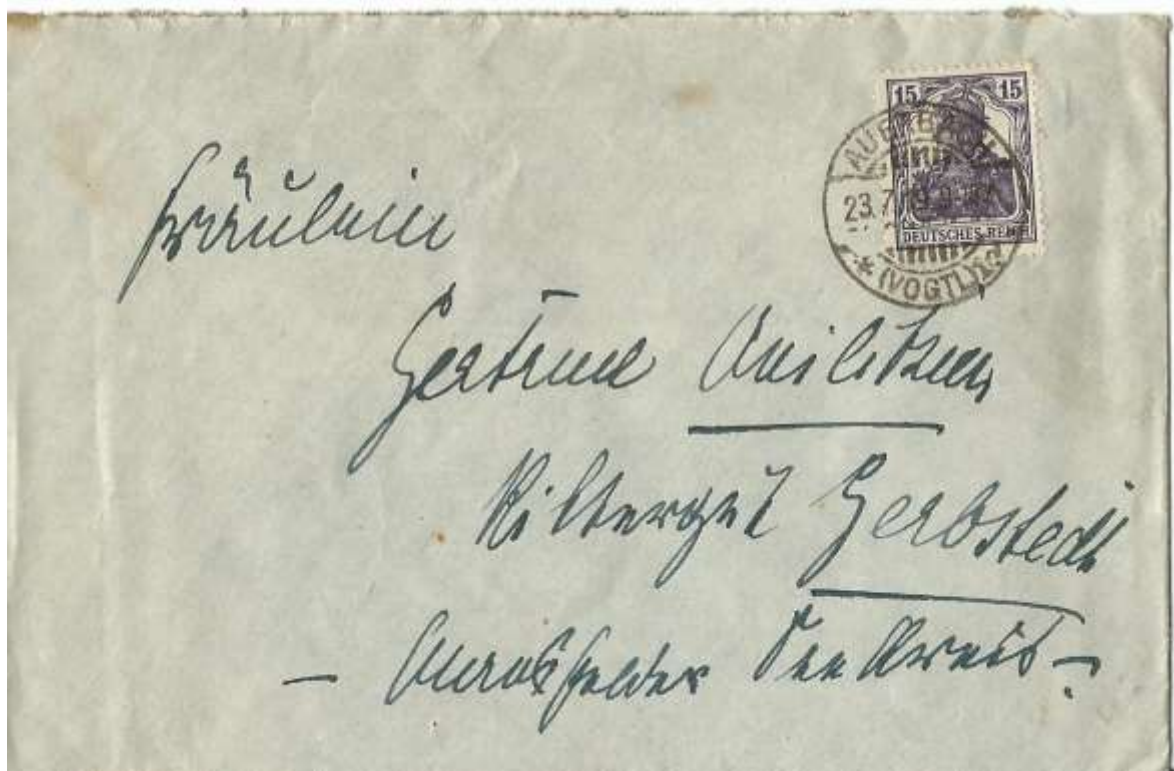 15 15
DEUTSCHES REICH
AUERBACH
23.7.
* (VOGTL)
Fräulein
Gertrud
Rittergut Gerbstedt
– Mansfelder Seekreis –